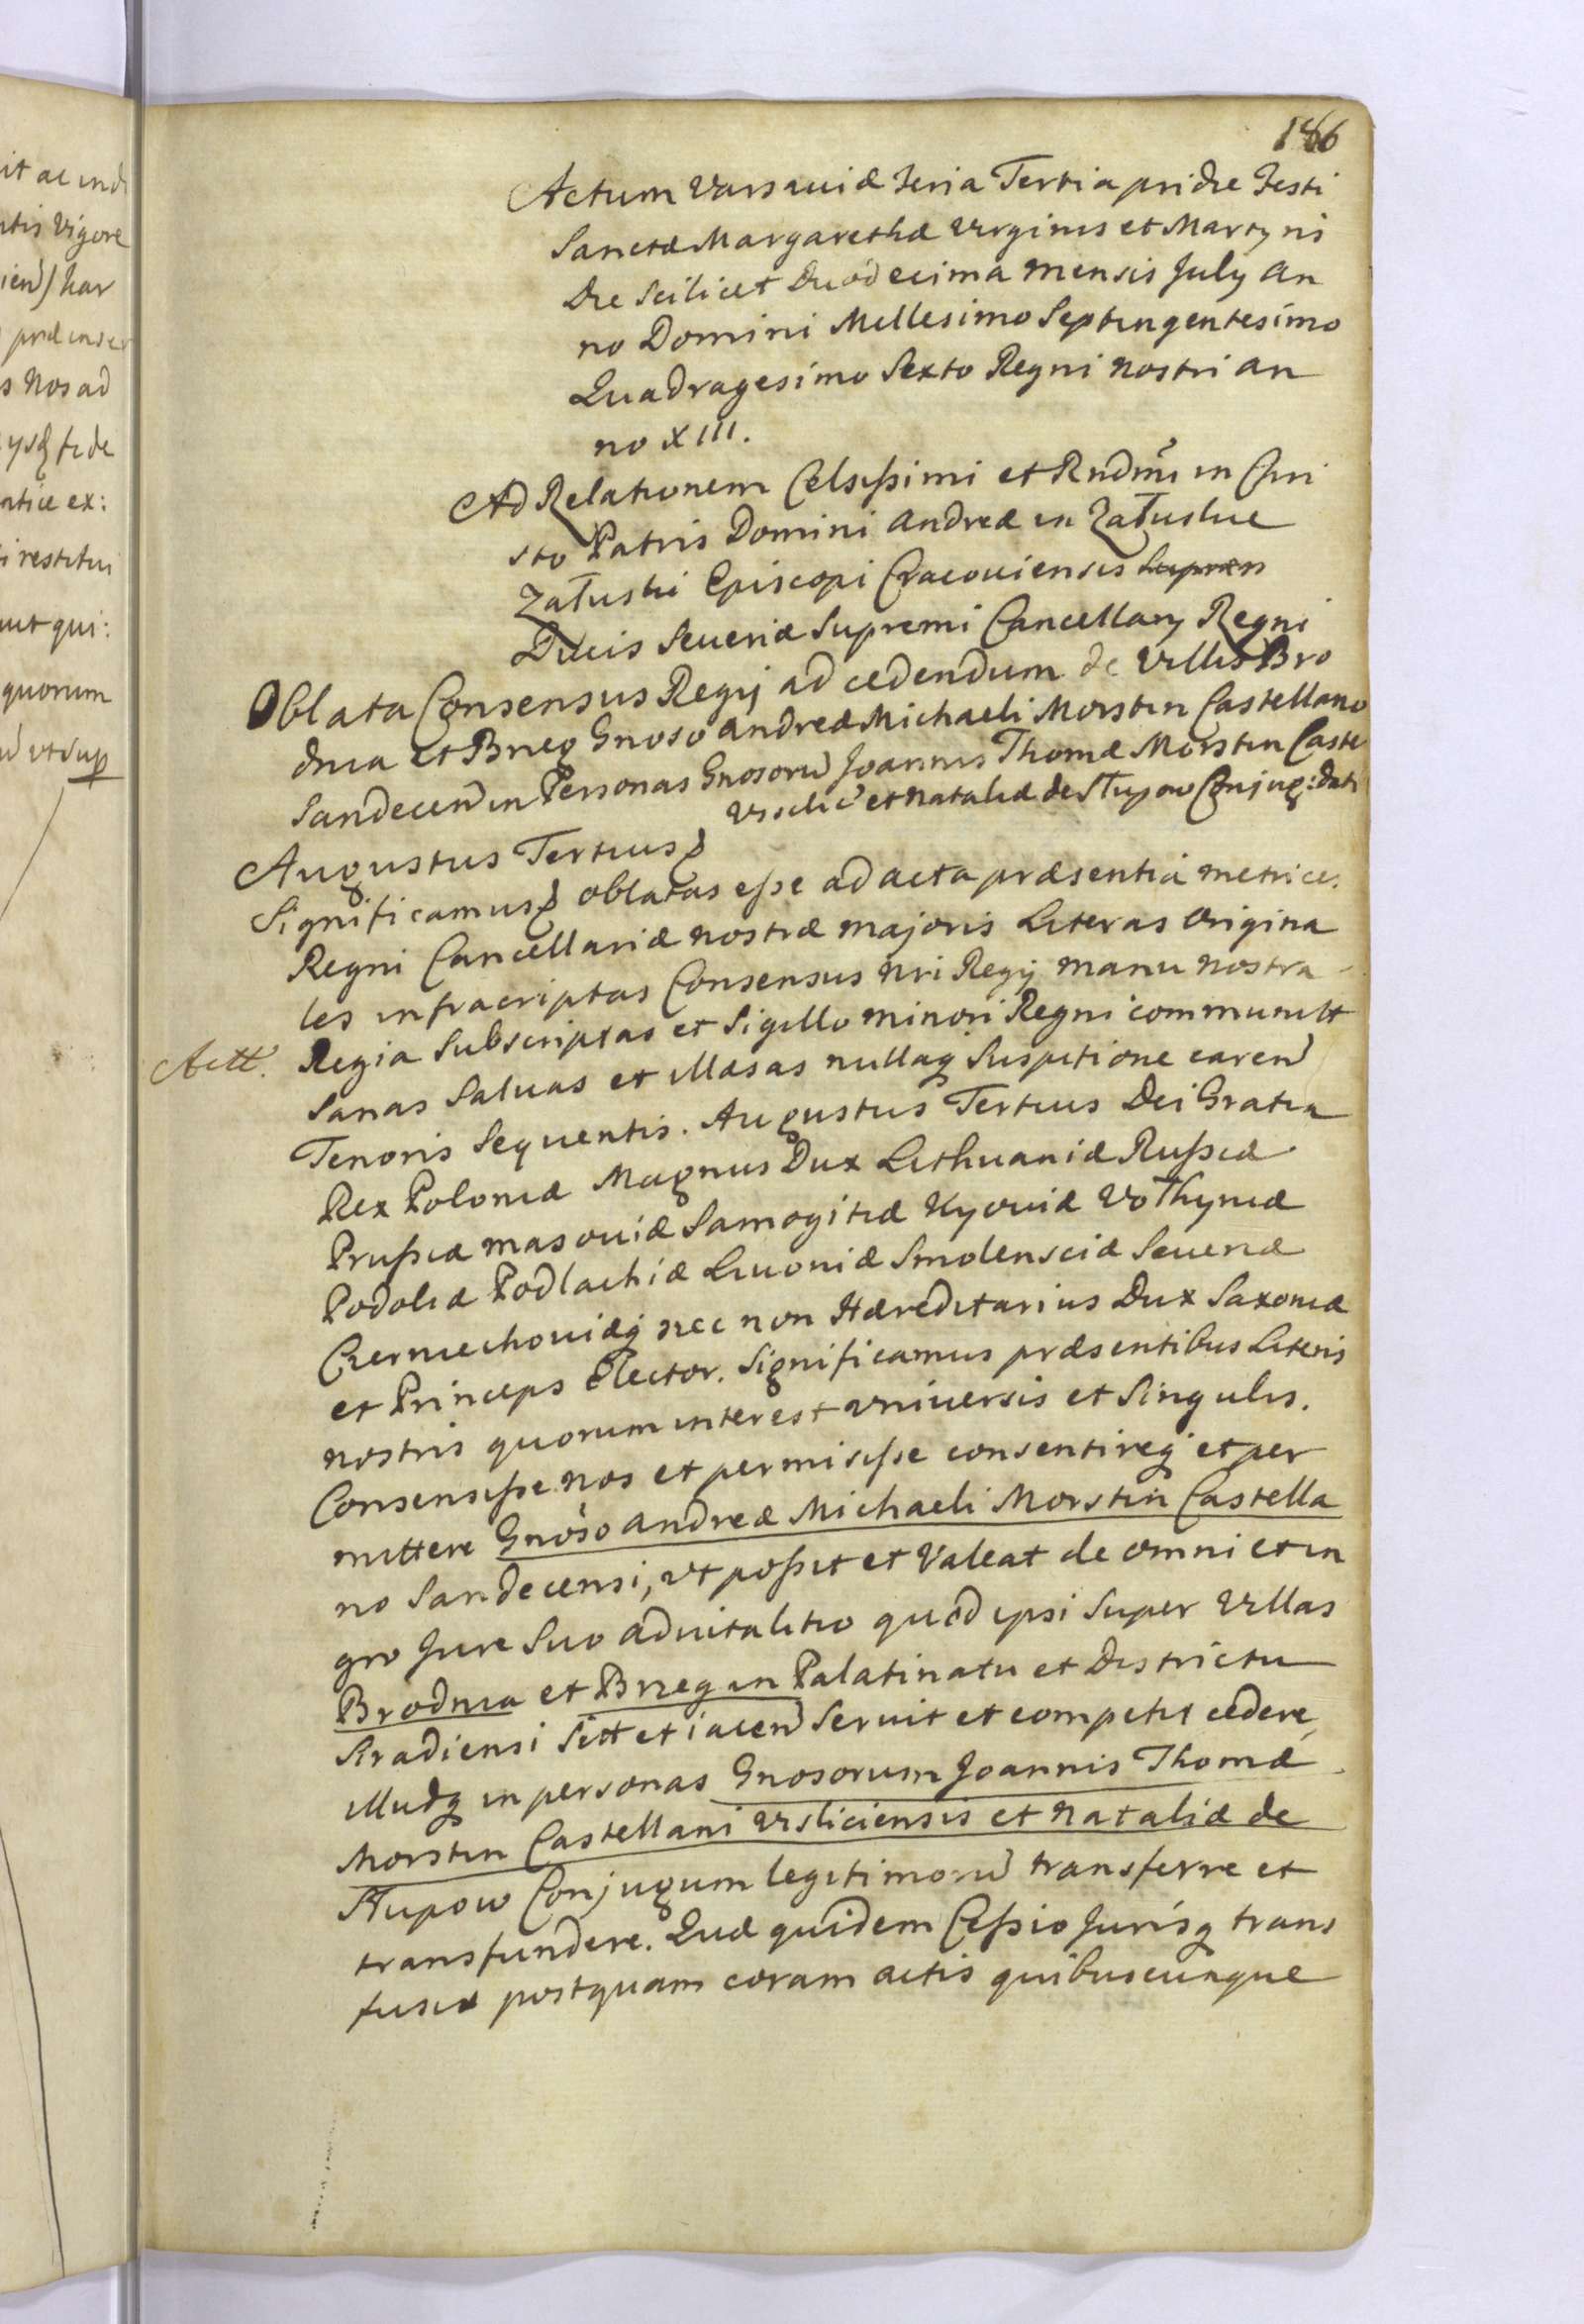 it ac ind
ntis Vigore
iend/ har
prd inser
s Nos ad
ysq fide
ntice ex:
i restitui
ut qui:
quorum
d ut sup
186
Actum Varsaviæ Feria Tertia pridie Festi
Sanctæ Margarethæ Virginis et Martyris
Die Scilicet Duodecima Mensis July An
no Domini Millesimo Septingentesimo
Quadragesimo Sexto Regni Nostri an
no XIII.
Ad Relationem Celsissimi et Rndmi in Chri
sto Patris Domini Andreæ in Załuskie
Załuski Episcopi Cracoviensis
Ducis Severiæ Supremi Cancellarij Regni
Oblata Consensus Regij ad cedendum de Villis Bro
dnia et Brzeg Gnoso Andreæ Michaeli Morstin Castellano
Sandecen in Personas Gnosorum Joannis Thomæ Morstin Caste
Vislic et Nataliæ de Słupow Conjug: dati
Augustus Tertius
Significamus oblatas esse ad acta præsentia metrices
Regni Cancellariæ nostræ majoris Literas Origina
les infracriptas Consensus Nri Regij manu nostra
Actt. Regia Subscriptas et Sigillo minori Regni communitt
Sanas Salvas et illæsas nullaq Suspitione caren
Tenoris Sequentis. Augustus Tertius Dei Gratia
Rex Poloniæ Magnus Dux Lithuaniæ Russiæ
Prussiæ Masoviæ Samogitiæ Kyoviæ Vołhyniæ
Podoliæ Podlachiæ Livoniæ Smolensciæ Severiæ
Czerniechoviæq nec non Hæreditarius Dux Saxoniæ
et Princeps Elector. Significamus præsentibus Literis
nostris quorum interest Universis et Singulis.
Consensisse Nos et permisisse consentireq et per
mittere Gnoso Andreæ Michaeli Morstin Castella
no Sandecensi, ut possit et Valeat de omni et in
gro Jure Suo advitalitio quod ipsi Super Villas
Brodnia et Brzeg in Palatinatu et Districtu
Siradiensi Sitt et iacen Servit et competit cedere,
illudq in personas Gnosorum Joannis Thomæ
Morstin Castellani Visliciensis et Nataliæ de
Słupow Conjugum legitimoru transferre et
transfundere. Quæ quidem Cessio Jurisq trans
fusio postquam coram actis quibuscunque